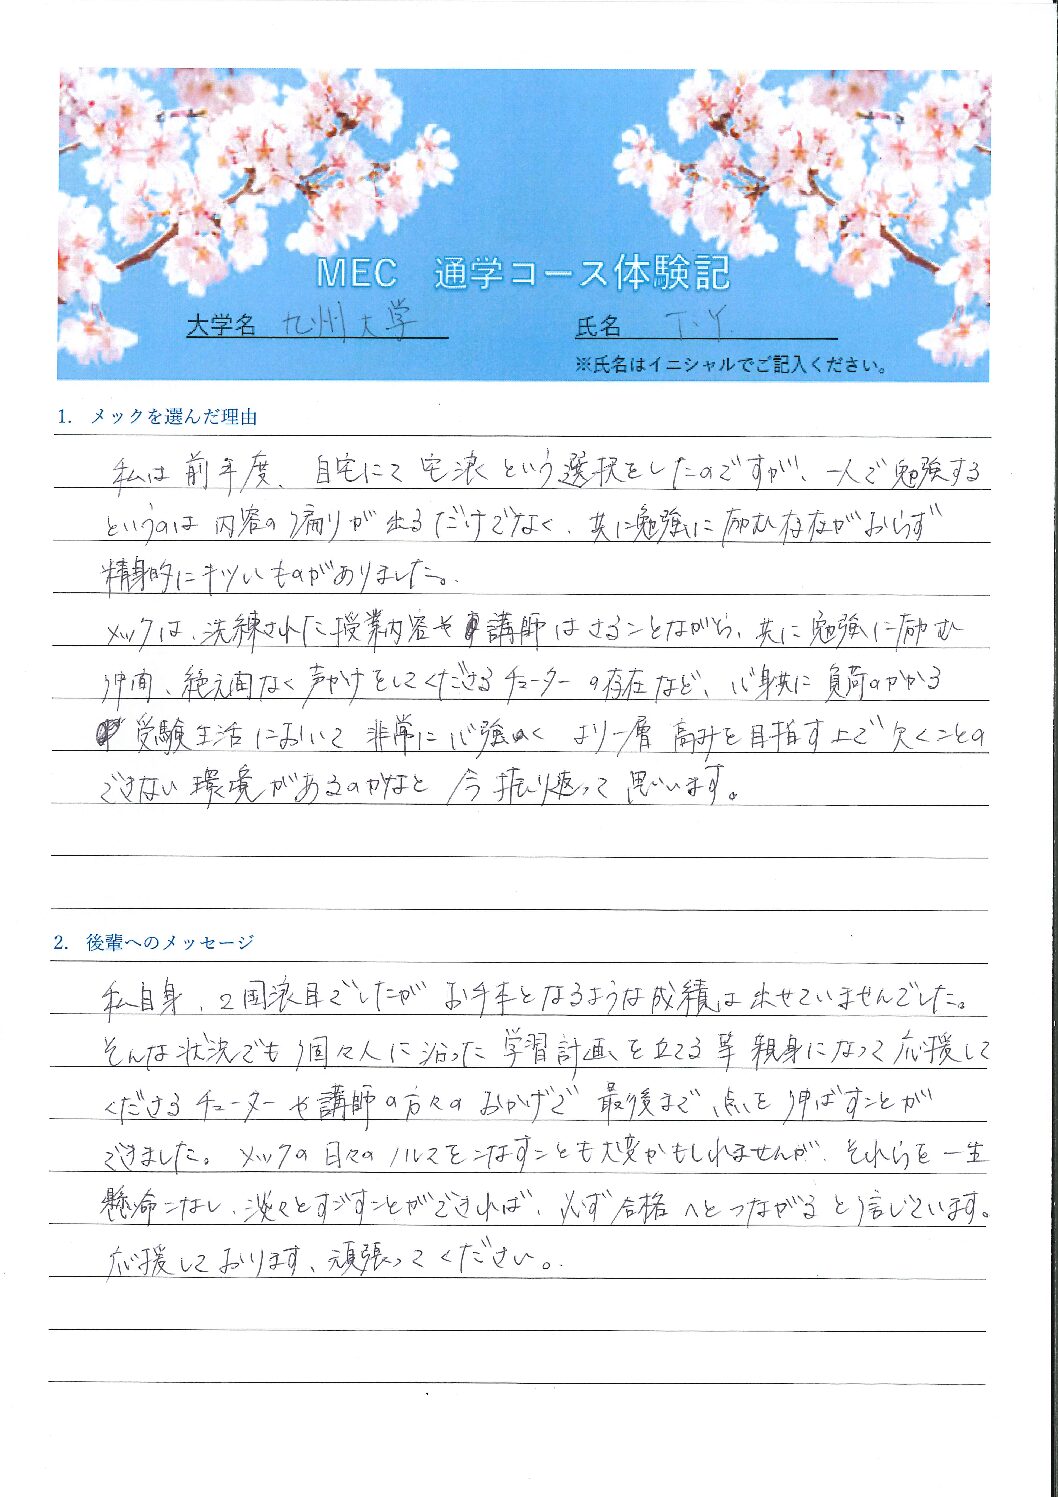 MEC 通学コース体験記
大学名 九州大学 氏名 T.Y.
※氏名はイニシャルでご記入ください。
1. メックを選んだ理由
私は前年度、自宅にて宅浪という選択をしたのですが、一人で勉強する
というのは内容の偏りが出るだけでなく、共に勉強に励む存在がおらず
精神的にキツいものがありました。
メックは、洗練された授業内容や講師はさることながら、共に勉強に励む
仲間、絶え間なく声かけをしてくださるチューターの存在など、心身共に負荷のかかる
受験生活において非常に心強く より一層高みを目指す上で欠くことの
できない環境があるのかなと今振り返って思います。
2. 後輩へのメッセージ
私自身、2国浪目でしたがお手本となるような成績は出せていませんでした。
そんな状況でも個々人に沿った学習計画を立てる等親身になって応援して
くださるチューターや講師の方々のおかげで最後まで点を伸ばすことが
できました。メックの日々のノルマをこなすことも大変かもしれませんが、それらを一生
懸命こなし、淡々とすごすことができれば、必ず合格へとつながると信じています。
応援しております、頑張ってください。